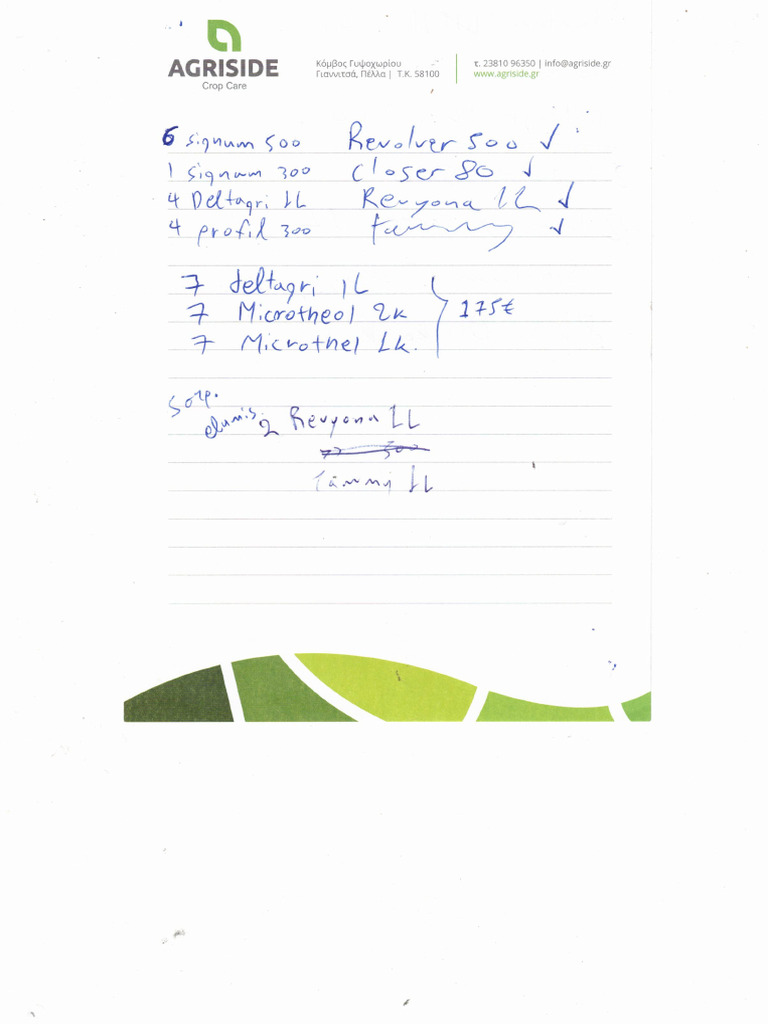 AGRISIDE
Crop Care
Κόμβος Γυψοχωρίου
Γιαννιτσά, Πέλλα | Τ.Κ. 58100
τ. 23810 96350 | info@agriside.gr
www.agriside.gr
6 signum 500 Revolver 500 ✓
1 signum 300 Closer 80 ✓
4 Deltagri 1L Revyona 1L ✓
4 profil 300 ✓
7 deltagri 1L
7 Microtheol 2k 175€
7 Microthel 1k.
2 Revyona 1L
Tammy 1L